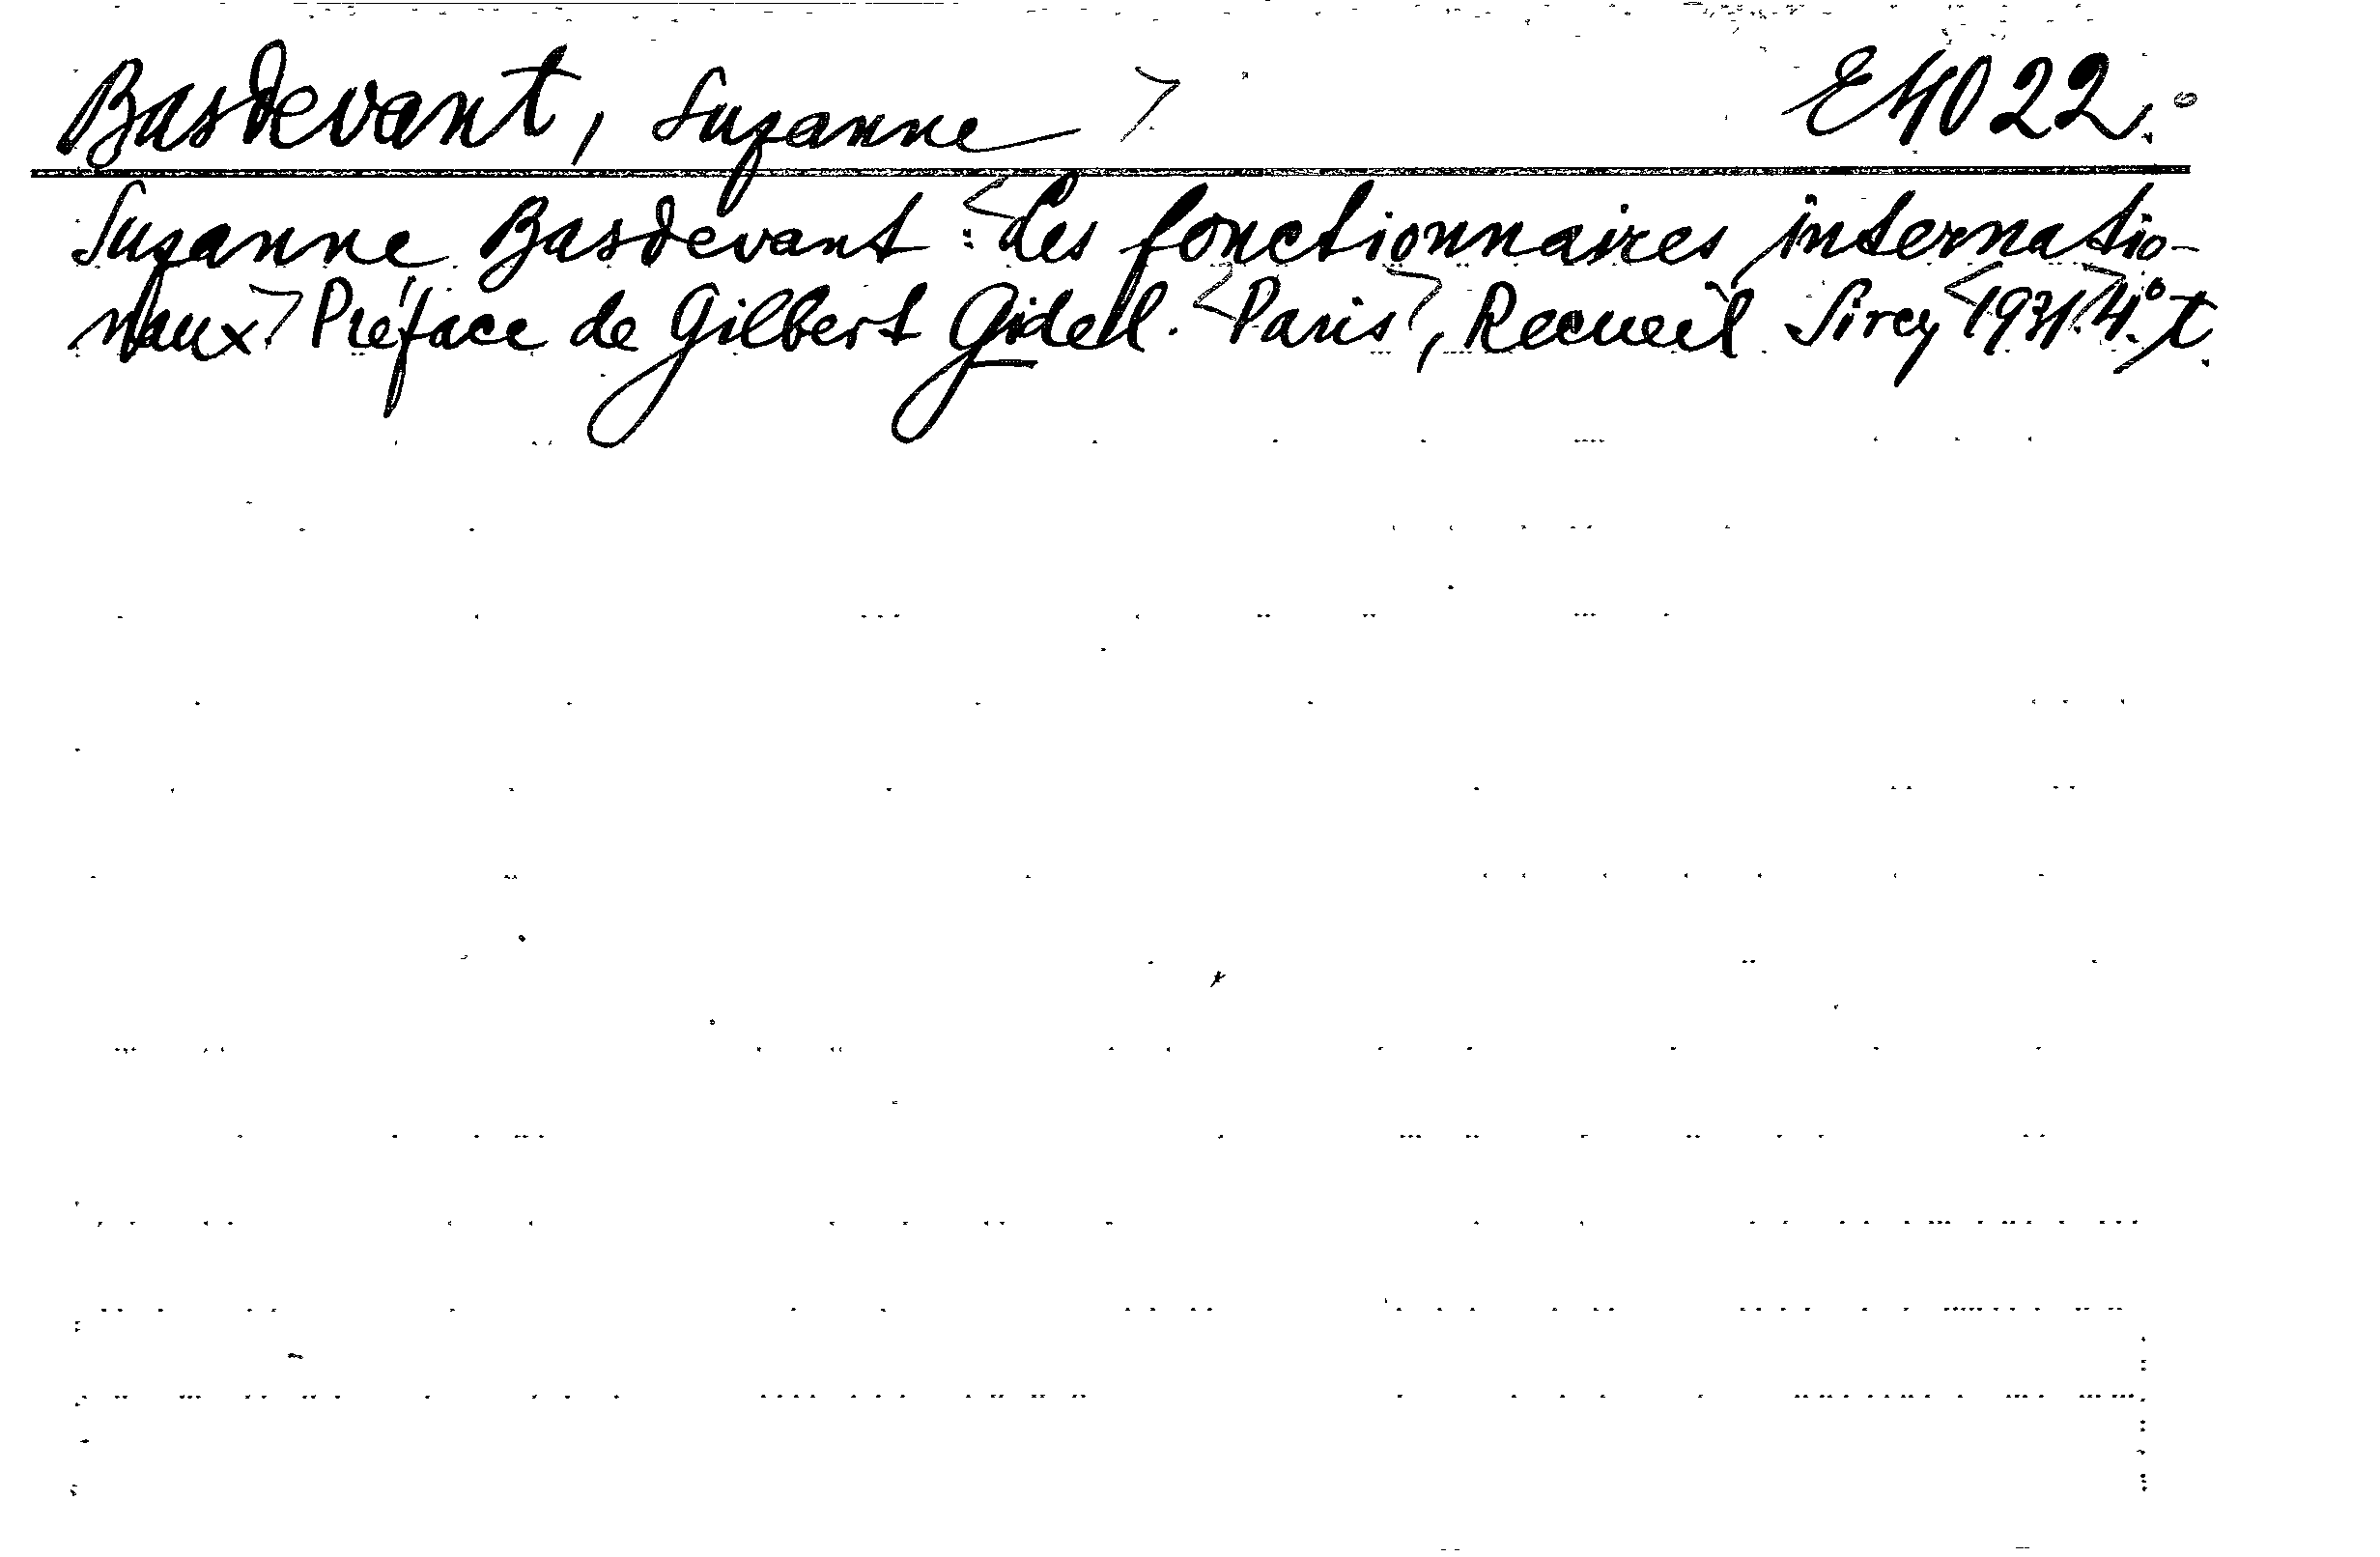 Basdevant, Suzanne > E4022.°
Suzanne Basdevant : <Les fonctionnaires internatio-
naux> Préface de Gilbert Gidel. <Paris>, Recueil Sirey <1931.> 4.° t.